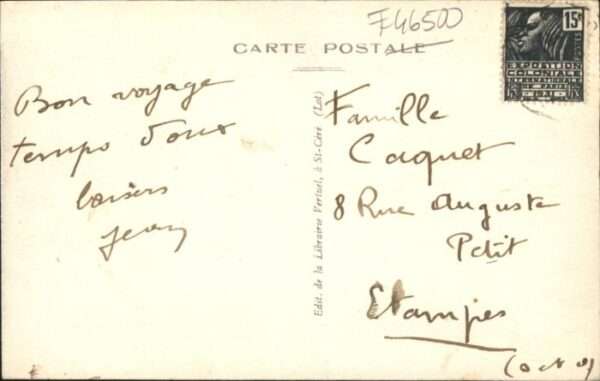 F46500
CARTE POSTALE
15c
POSTES
EXPOSITION
COLONIALE
INTERNATIONALE
DE PARIS
1931
Bon voyage
temps doux
baisers
Jean
Edit. de la Librairie Vertuel, à St-Céré (Lot)
Famille
Caquet
8 Rue Auguste
Petit
Etampes
(S et O)